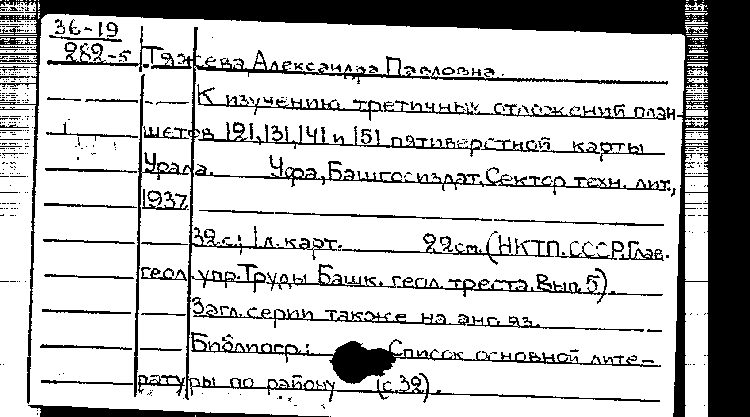 36-19
282-5 Тяжева, Александра Павловна.
К изучению третичных отложений план-
шетов 121, 131, 141 и 151 пятиверстной карты
Урала. Уфа, Башгосиздат, Сектор техн. лит.,
1937
32 с; 1 л. карт. 22 см. (НКТП. СССР. Глав.
геол. упр. Труды Башк. геол. треста. Вып. 5).
Загл. серии также на анг. яз.
Библиогр.: Список основной лите-
ратуры по району (с. 32).